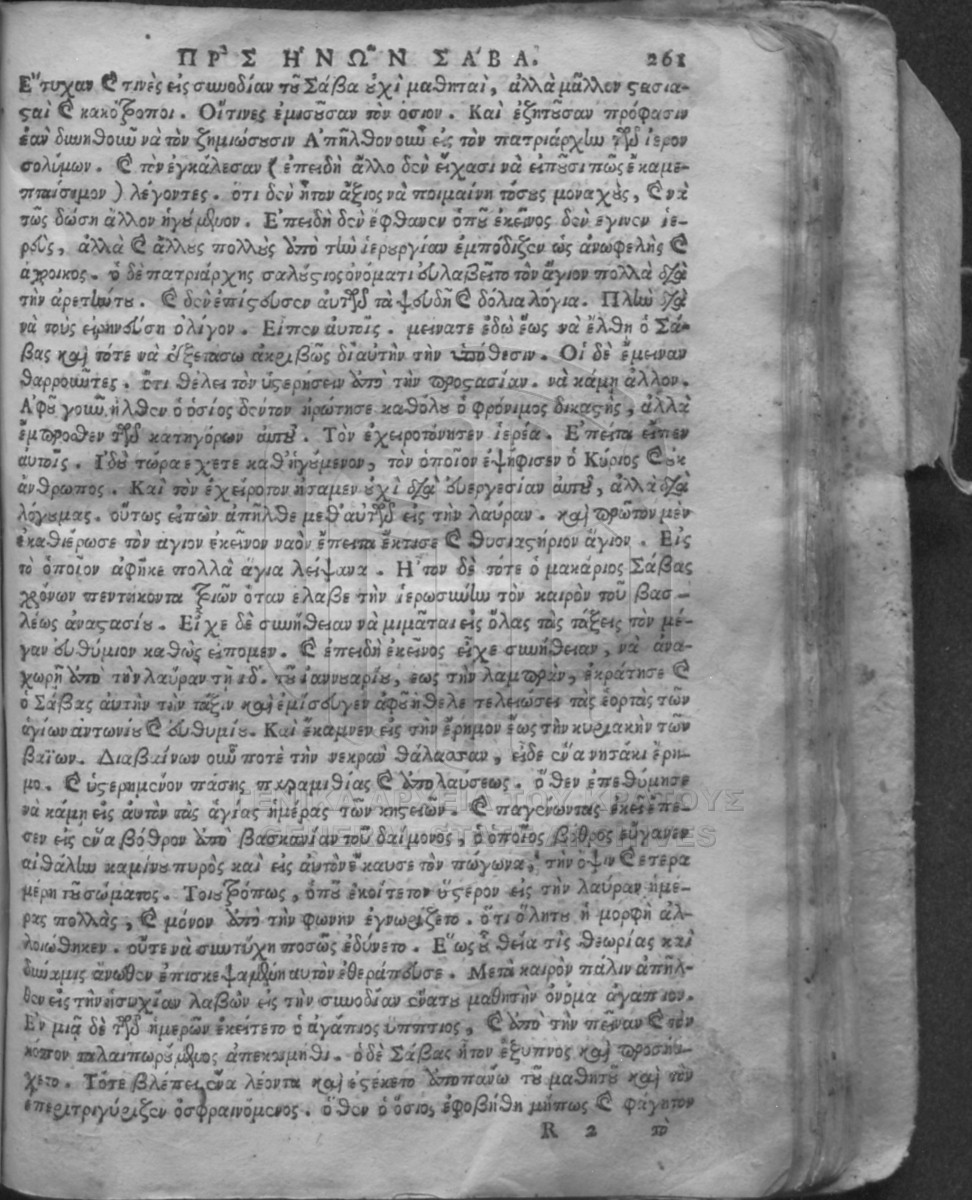 ΠΡῸΣ ἩΝΩῺΝ ΣΆΒΑ. 261
Ἔτυχαν ϗ τινὲς εἰς συνοδίαν τοῦ Σάβα οὐχὶ μαθηταὶ, ἀλλὰ μᾶλλον στασια-
σταὶ ϗ κακότροποι. Οἵτινες ἐμισοῦσαν τὸν ὅσιον. Καὶ ἐζητοῦσαν πρόφασιν
ἐὰν δυνηθοῦν νὰ τὸν ζημιώσουσιν Ἀπῆλθον οὖν εἰς τὸν πατριάρχην τῶν ἱερον
σολύμων. ϗ τὸν ἐγκάλεσαν ( ἐπειδὴ ἄλλο δὲν εἴχασι νὰ εἰποῦσι πῶς ἔκαμε-
πταίσιμον ) λέγοντες. ὅτι δὲν ἦτον ἄξιος νὰ ποιμαίνη τόσους μοναχοὺς, ϗ νὰ
τοῦς δώση ἄλλον ἡγούμενον. Ἐπειδὴ δὲν ἔφθανεν ὁποῦ ἐκεῖνος δὲν ἔγινεν ἱε-
ρεὺς, ἀλλὰ ϗ ἄλλους πολλοὺς ἀπὸ τὴν ἱερουργίαν ἐμπόδιζεν ὡς ἀνωφελὴς ϗ
ἄγροικος. ὁ δὲ πατριάρχης σαλούστιος ὀνόματι εὐλαβεῖτο τὸν ἅγιον πολλὰ διὰ
τὴν ἀρετήντου. ϗ δὲν ἐπίστευσεν αὐτῶν τὰ ψευδῆ ϗ δόλια λόγια. Πλὴν διὰ
νὰ τοὺς εἰρηνεύση ὀλίγον. Εἶπεν αὐτοῖς. μείνατε ἐδῶ ἕως νὰ ἔλθη ὁ Σά-
βας καὶ τότε νὰ ἐξετάσω ἀκριβῶς δι αὐτὴν τὴν ὑπόθεσιν. Οἱ δὲ ἔμειναν
θαρροῦντες. ὅτι θέλει τὸν ὑστερήσειν ἀπὸ τὴν προστασίαν. νὰ κάμη ἄλλον.
Ἀφοῦ γοῦν ἦλθεν ὁ ὅσιος δέντον ἠρώτησε καθόλου ὁ φρόνιμος δικαστὴς, ἀλλὰ
ἔμπροσθεν τῶν κατηγόρων αὐτοῦ. Τὸν ἐχειροτόνησεν ἱερέα. Ἔπειτα εἶπεν
αὐτοῖς. Ἰδοὺ τώρα ἔχετε καθ'ηγούμενον, τὸν ὁποῖον ἐψήφισεν ὁ Κύριος ϗ οὐκ
ἄνθρωπος. Καὶ τὸν ἐχειροτον ήσαμεν οὐχὶ διὰ εὐεργεσίαν αὐτοῦ, ἀλλὰ διὰ
λόγουμας. οὕτως εἰπὼν ἀπῆλθε μεθ'αὐτῶν εἰς τὴν λαύραν. καὶ πρῶτον μὲν
ἐκαθιέρωσε τὸν ἅγιον ἐκεῖνον ναὸν ἔπειτα ἔκτισε ϗ θυσιαστήριον ἅγιον. Εἰς
τὸ ὁποῖον ἀφῆκε πολλὰ ἅγια λείψανα. Ἦτον δὲ τότε ὁ μακάριος Σάβας
χρόνων πεντήκοντα τριῶν ὅταν ἔλαβε τὴν ἱερωσύνην τὸν καιρὸν τοῦ βασ-
λέως ἀναστασίου. Εἶχε δὲ συνήθειαν νὰ μιμᾶται εἰς ὅλας τὰς τάξεις τὸν μέ-
γαν εὐθύμιον καθὼς εἴπομεν. ϗ ἐπειδὴ ἐκεῖνος εἶχε συνήθειαν, νὰ ἀνα-
χωρῆ ἀπὸ τὴν λαύραν τῆ ιδ. τοῦ ἰαννουαρίου, ἕως τὴν λαμπρὰν, ἐκράτησε ϗ
ὁ Σάβας αὐτὴν τὴν τάξιν καὶ ἐμίσευγεν ἀφοῦ ἤθελε τελειώσει τὰς ἑορτὰς τῶν
ἁγίων ἀντωνίου ϗ εὐθυμίου. Καὶ ἔκαμνεν εἰς τὴν ἔρημον ἕως τὴν κυριακὴν τῶν
βαΐων. Διαβαίνων οὖν ποτὲ τὴν νεκρὰν θάλασσαν, εἶδε ἕνα νησάκι ἔρη-
μο. ϗ ὑστερημένον πάσης παραμιθίας ϗ ἀπολαύσεως. ὅθεν ἐπεθύμησε
νὰ κάμη εἰς αὐτὸν τὰς ἁγίας ἡμέρας τῶν νηστειῶν. ϗ παγένωντας ἐκεῖ ἔπε-
σεν εἰς ἕνα βόθρον ἀπὸ βασκανίαν τοῦ δαίμονος, ὁ ὁποῖος βόθρος εὔγανεν
αἰθάλην καμίνου πυρὸς καὶ εἰς αὐτὸν ἔκαυσε τὸν πώγωνα, τὴν ὄψιν ϗ ἕτερα
μέρη τοῦ σώματος. Τοιουτρόπως, ὁποῦ ἐκοίτετον ὕστερον εἰς τὴν λαύραν ἡμέ-
ρας πολλὰς, ϗ μόνον ἀπὸ τὴν φωνὴν ἐγνωρίζετο. ὅτι ὅλητου ἡ μορφὴ ἀλ-
λοιώθηκεν. οὔτε νὰ συντύχη ποσῶς ἐδύνετο. Ἕως οὗ θεία τὶς θεωρίας καὶ
δύναμις ἄνωθεν ἐπισκεψαμένη αὐτὸν ἐθεράπευσε. Μετὰ καιρὸν πάλιν ἀπῆλ-
θεν εἰς τὴν ἡσυχίαν λαβὼν εἰς τὴν συνοδίαν ἕνατου μαθητὴν ὄνομα ἀγάπιον.
Ἐν μιᾷ δὲ τῶν ἡμερῶν ἐκείτετο ὁ ἀγάπιος ὕππτιος, ϗ ἀπὸ τὴν πεῖναν ϗ τὸν
κόπον ταλαιπωρούμενος ἀπεκοιμήθη. ὁ δὲ Σάβας ἦτον ἔξυπνος καὶ προσηύ-
χετο. Τότε βλέπει ἕνα λέοντα καὶ ἐστέκετο ἀποπάνω τοῦ μαθητοῦ καὶ τὸν
ἐπεριτριγύριζεν ὀσφραινόμενος. ὅθεν ὁ ὅσιος ἐφοβήθη μήπως ϗ φάγητον
R 2 τὸ
ΓΕΝΙΚΑ ΑΡΧΕΙΑ ΤΟΥ ΚΡΑΤΟΥΣ
GENERAL STATE ARCHIVES